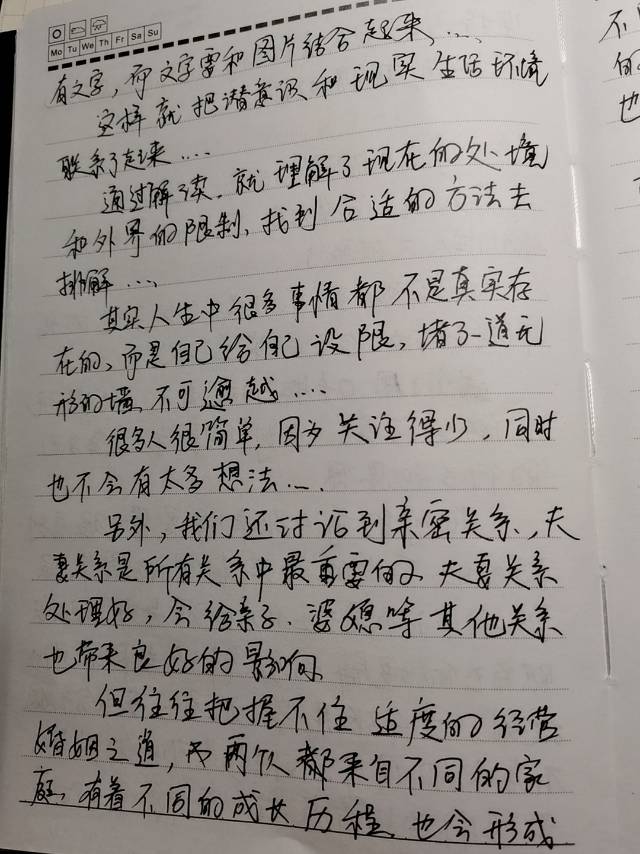 Mo Tu We Th Fr Sa Su
有文字，而文字要和图片结合起来，……
这样就把潜意识和现实生活环境
联系了起来……
通过解读，就理解了现在的处境
和外界的限制，找到合适的方法去
排解……
其实人生中很多事情都不是真实存
在的，而是自己给自己设限，堵了一道无
形的墙，不可逾越……
很多人很简单，因为关注得少，同时
也不会有太多想法……
另外，我们还讨论到亲密关系，夫
妻关系是所有关系中最重要的，夫妻关系
处理好，会给亲子、婆媳等其他关系
也带来良好的影响，
但往往把握不住适度的经营
婚姻之道，而两个人都来自不同的家
庭，有着不同的成长历程，也会形成
不
的
也